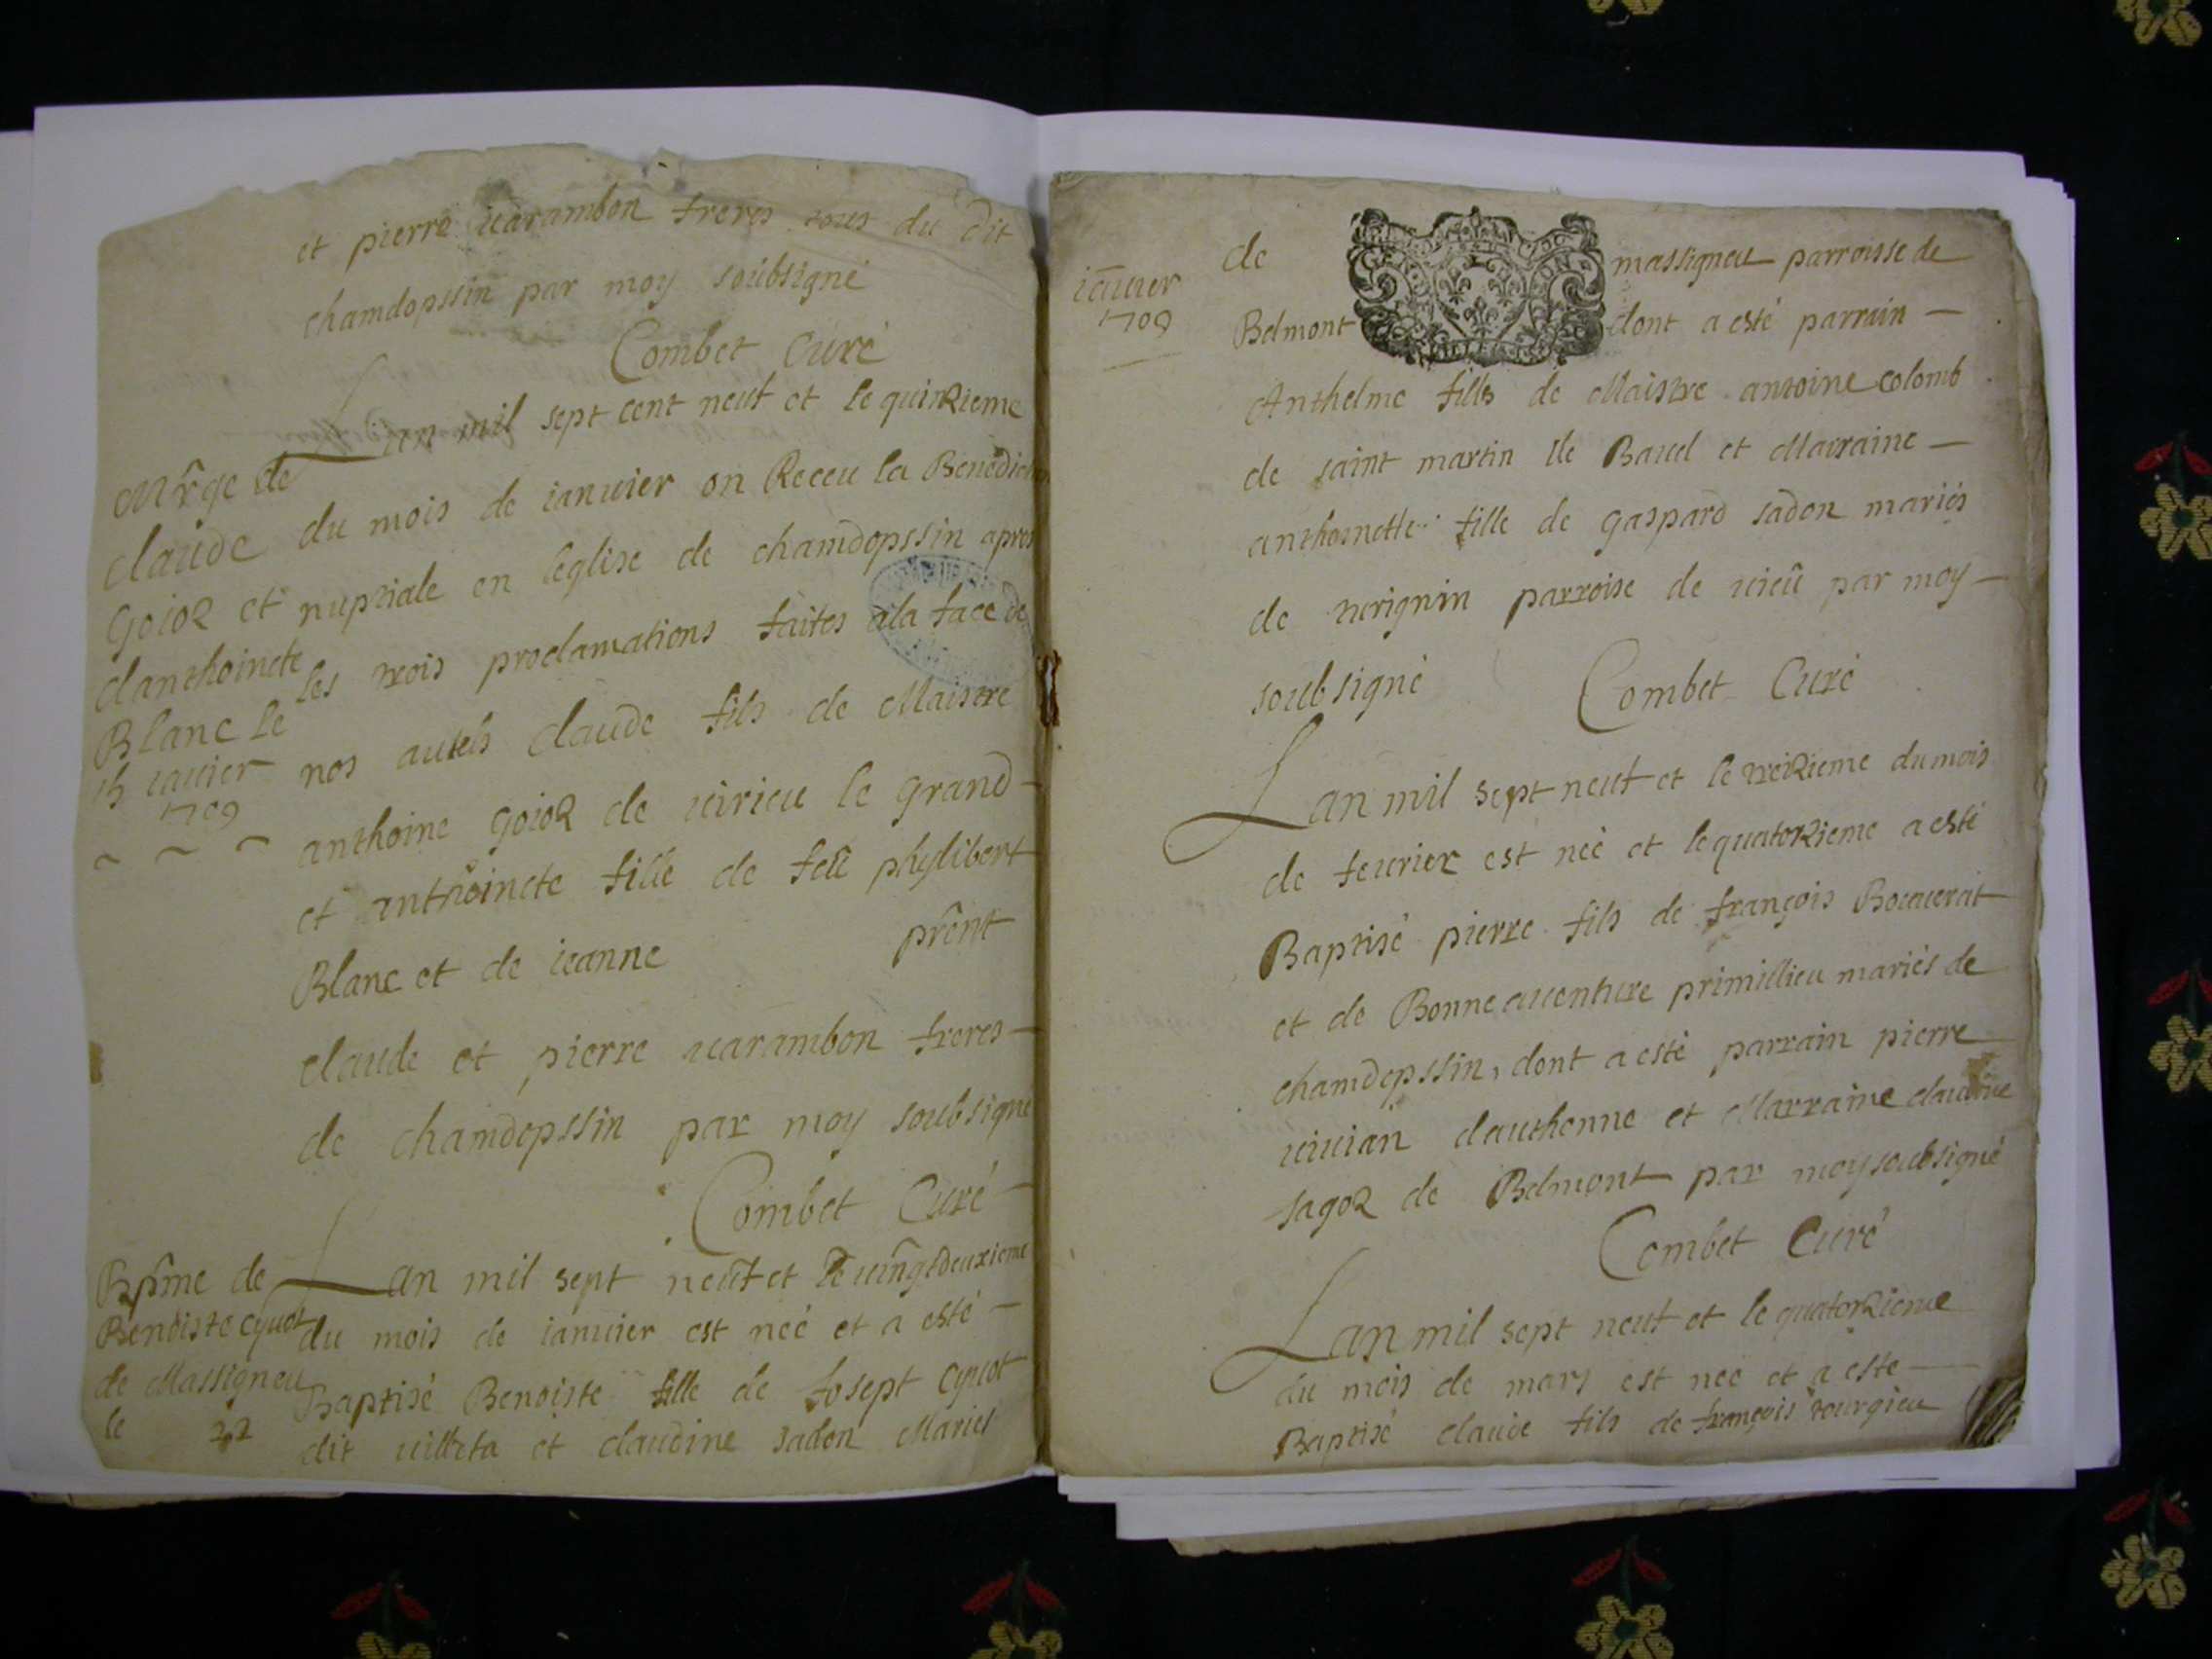 et pierre uarambon freres tous du dit
chamdopssin par moy soubsigné
Combet Curé
Mr̂ge de
claude
Goior et
danthoinete
Blanc le
15 iauier
1709
Lan mil sept cent neuf et le quinzieme
du mois de ianuier on Receu la Benedict
nuptiale en leglise de chamdopssin apres
les trois proclamations faites ala face de
nos autels claude fils de Maistre
anthoine Goior de uirieu le grand
et anthoinete fille de feû phylibert
Blanc et de ieanne prênt
claude et pierre uarambon freres
de chamdopssin par moy soubsigné
Combet Curé
Bpm̂e de
Benoiste cyuot
de Massigneu
le 22
Lan mil sept neuf et le uingtdeuxieme
du mois de ianuier est neé et a esté
Baptisé Benoiste fille de Josept Cyuot
dit uilleta et claudine sadon Mariés
iāuier
1709
de massigneu parroisse de
Belmont dont a esté parrain
Anthelme fills de Maistre antoine colomb
de saint martin de Bauel et Marraine
anthoinette fille de gaspard sadon mariés
de uerignin parroise de uieû par moy
soubsigné Combet Curé
Lan mil sept neuf et le treizieme du mois
de feurier est neé et le quatorzieme a esté
Baptisé pierre fils de françois Bocacerat
et de Bonne auenture primillieu mariés de
chamdopssin, dont a esté parrain pierre
uiuian dauthonne et Marraine claudine
sagor de Belmont par moy soubsigné
Combet Curé
Lan mil sept neuf et le quatorzieme
du mois de mars est neé et a esté
Baptisé claude fils de françois tourgieu